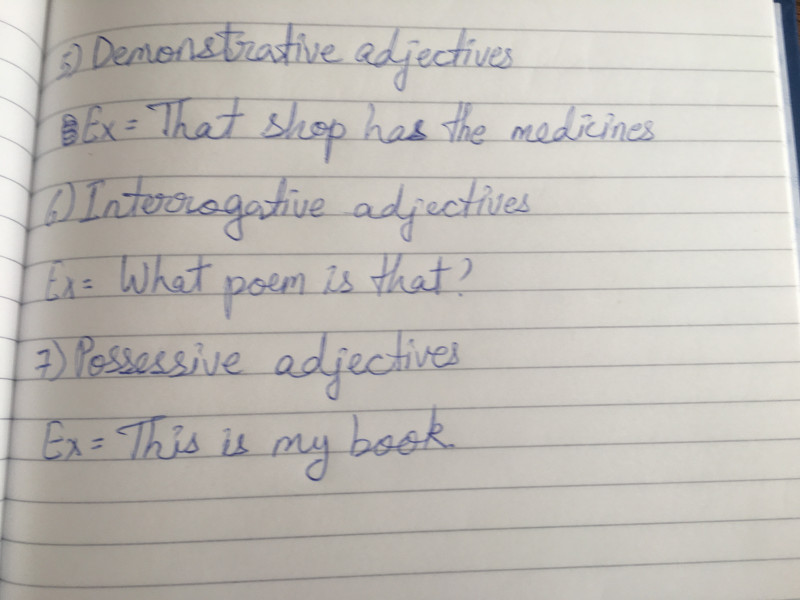 5) Demonstrative adjectives
Ex = That shop has the medicines
6) Interrogative adjectives
Ex = What poem is that?
7) Possessive adjectives
Ex = This is my book.